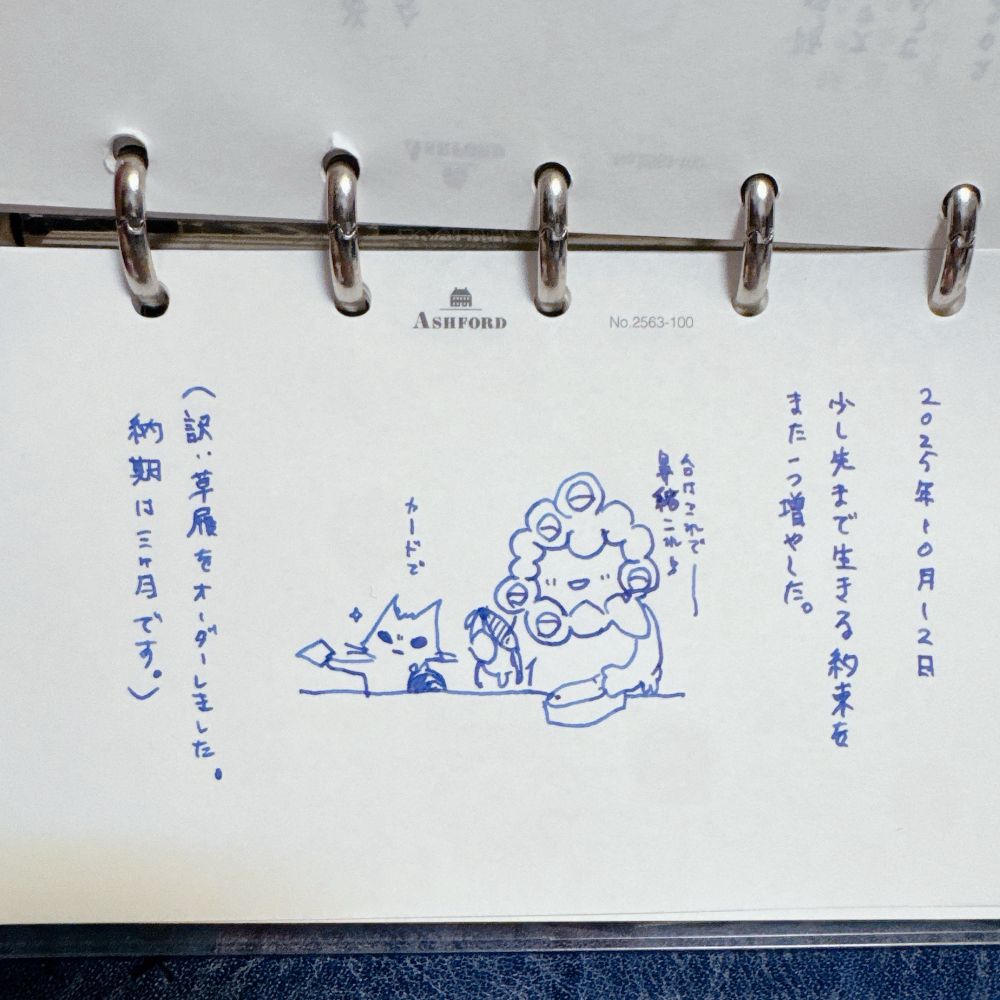 ASHFORD
No.2563-100
2025年10月12日
少し先まで生きる約束を
また一つ増やした。
台はこれで
鼻緒これよ
カードで
(訳:草履をオーダーしました。
納期は三ヶ月です。)